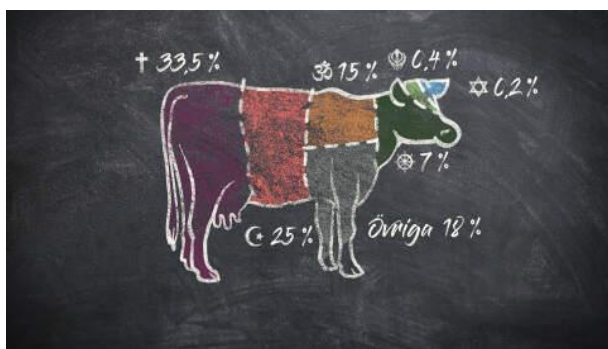 ✝ 33,5 %
ॐ 15 %
☬ 0,4 %
✡ 0,2 %
☸ 7 %
☪ 25 %
Övriga 18 %